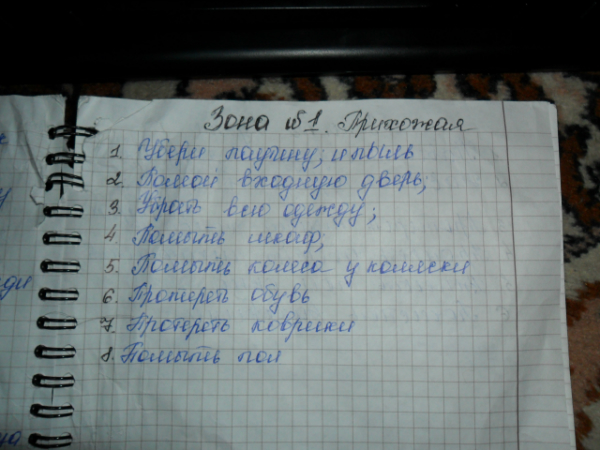 Зона №1. Прихожая
1. Убери паутину; и пыль
2. Помой входную дверь;
3. Убрать всю одежду;
4. Помыть шкаф;
5. Помыть колеса у коляски
6. Протереть обувь
7. Протереть коврики
8. Помыть пол